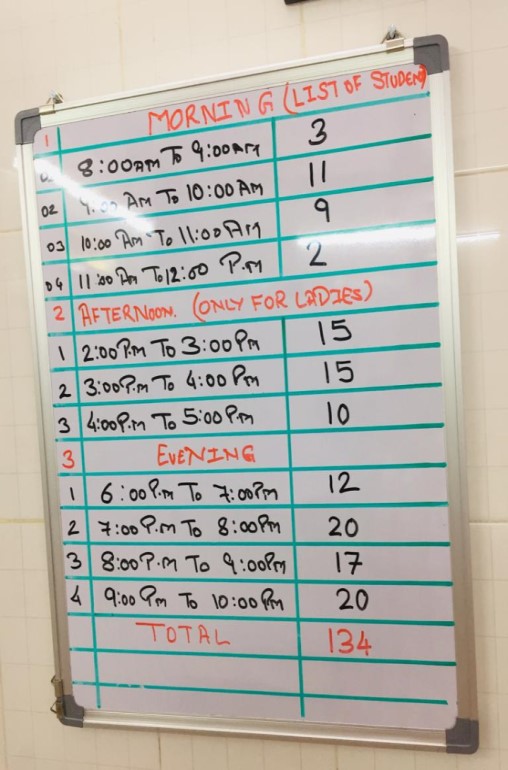 1 MORNING (LIST OF STUDENT)
01 8:00AM To 9:00AM 3
02 9:00 Am To 10:00 Am 11
03 10:00 Am To 11:00 Am 9
04 11:00 Am To 12:00 P.m 2
2 AFTERNOON. (ONLY FOR LADIES)
1 2:00P.m To 3:00Pm 15
2 3:00P.m To 4:00 Pm 15
3 4:00P.m To 5:00 P.m 10
3 EVENING
1 6:00P.m To 7:00Pm 12
2 7:00 P.m To 8:00Pm 20
3 8:00P.M To 9:00Pm 17
4 9:00 Pm To 10:00 Pm 20
TOTAL 134